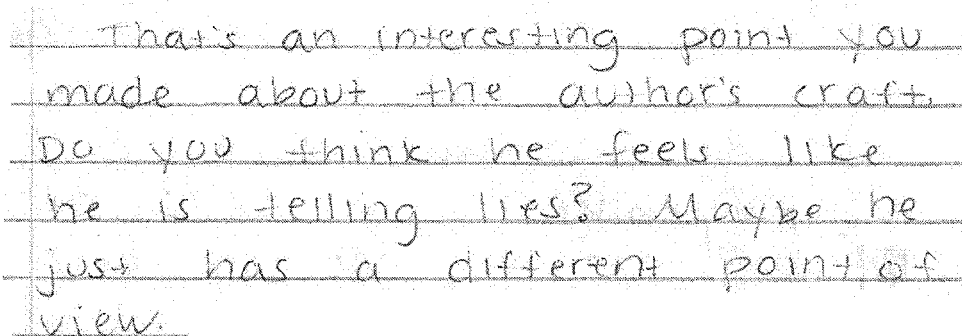 That's an interesting point you
made about the author's craft.
Do you think he feels like
he is telling lies? Maybe he
just has a different point of
view.